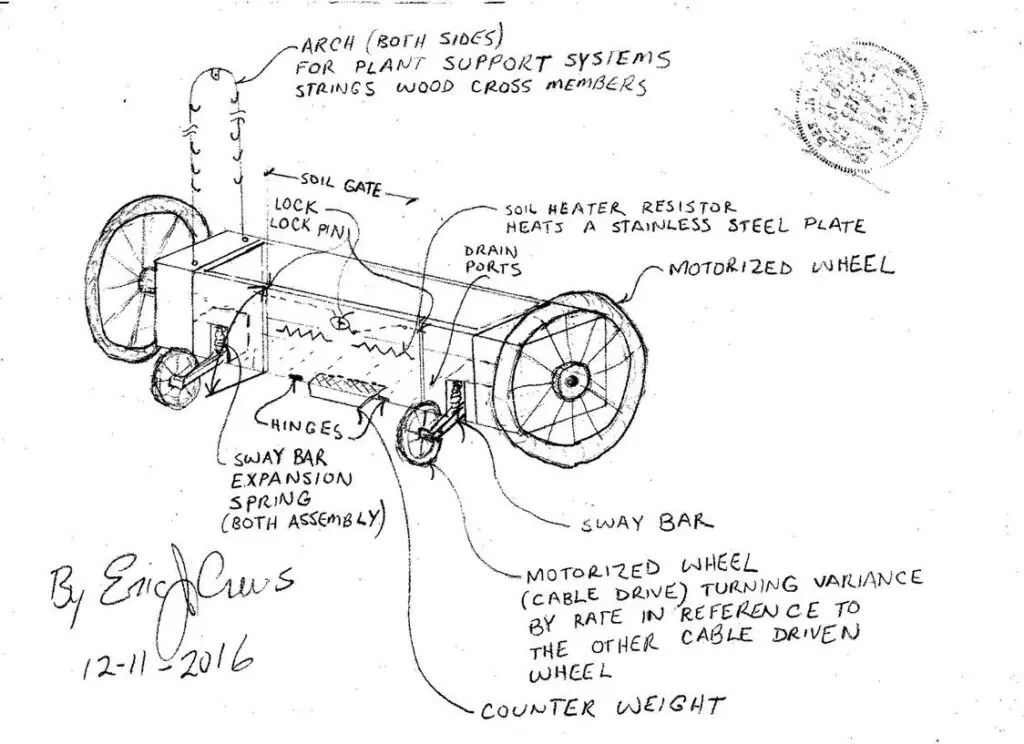 ARCH (BOTH SIDES)
FOR PLANT SUPPORT SYSTEMS
STRINGS WOOD CROSS MEMBERS
SOIL GATE
LOCK
LOCK PIN
SOIL HEATER RESISTOR
HEATS A STAINLESS STEEL PLATE
DRAIN
PORTS
MOTORIZED WHEEL
HINGES
SWAY BAR
EXPANSION
SPRING
(BOTH ASSEMBLY)
SWAY BAR
MOTORIZED WHEEL
(CABLE DRIVE) TURNING VARIANCE
BY RATE IN REFERENCE TO
THE OTHER CABLE DRIVEN
WHEEL
COUNTER WEIGHT
By Eric J Crews
12-11-2016